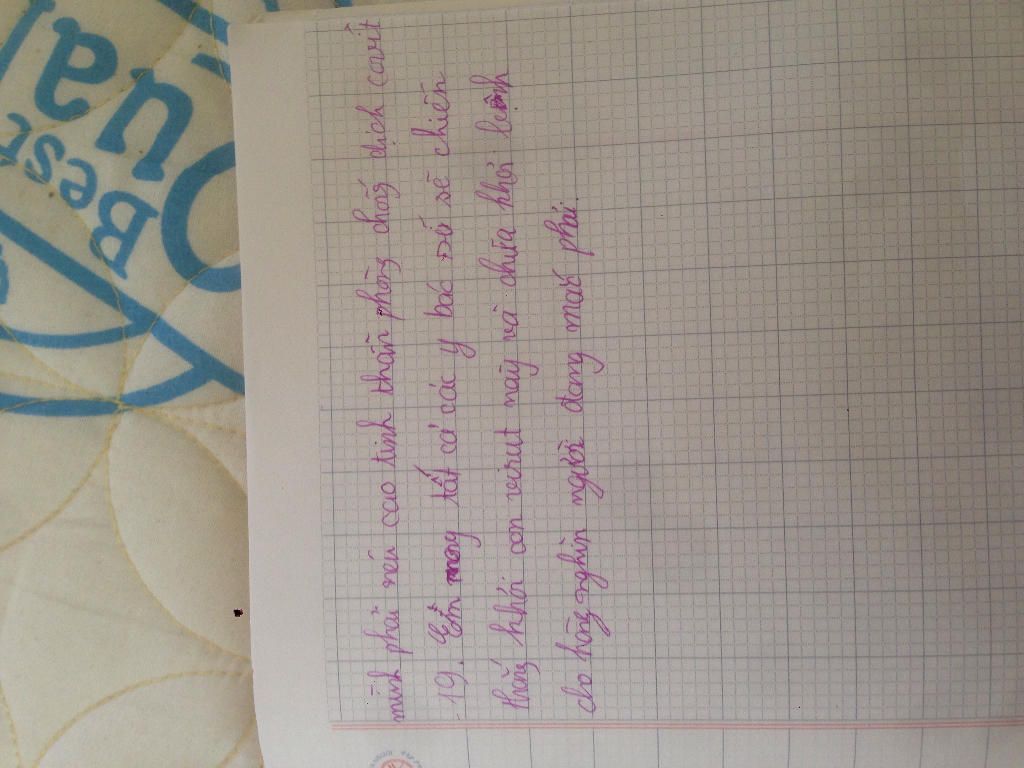 mình phải nêu cao tinh thần phòng chống dịch covit
19. Em mong tất cả các y bác sĩ sẽ chiến
thắng khỏi con virut này và chữa khỏi bệnh
cho hàng nghìn người đang mắc phải.
Best
Qual